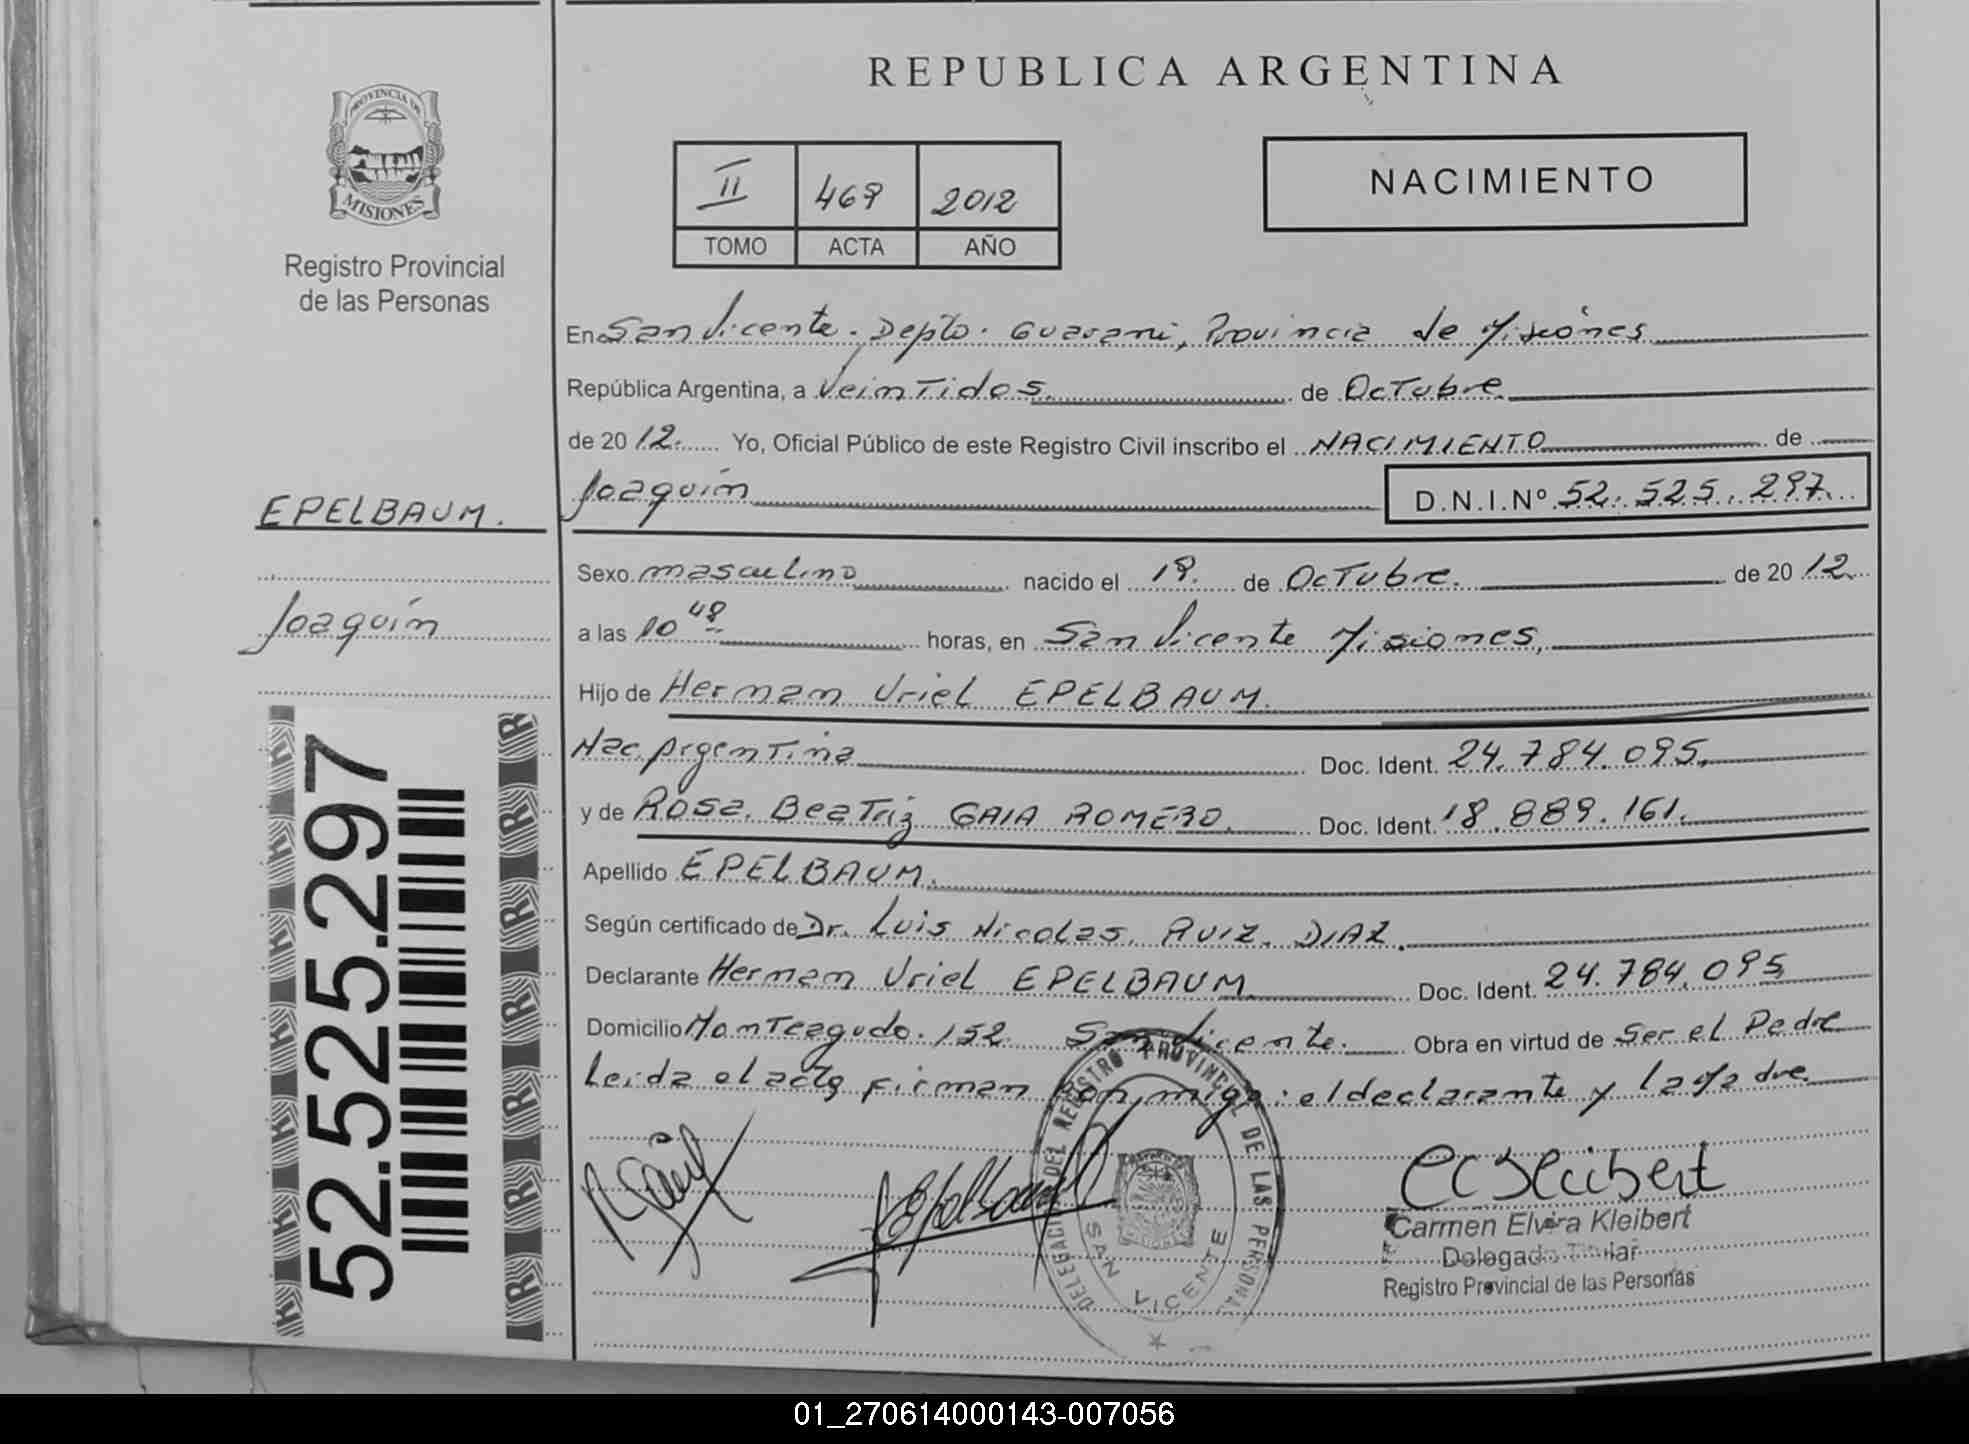 REPUBLICA ARGENTINA
PROVINCIA DE
MISIONES
Registro Provincial
de las Personas
II 469 2012
TOMO ACTA AÑO
NACIMIENTO
En San Vicente. Depto. Guarani, Provincia de Misiones
República Argentina, a Veintidos. de Octubre
de 20 12. Yo, Oficial Público de este Registro Civil inscribo el NACIMIENTO de
Joaquín D.N.I.Nº 52.525.297
EPELBAUM.
Joaquín
52.525.297
Sexo masculino nacido el 19. de Octubre. de 20 12
a las 10 48 horas, en San Vicente Misiones,
Hijo de Herman Uriel EPELBAUM.
Nac. Argentina Doc. Ident. 24.784.095,
y de Rosa. Beatriz GAIA ROMERO. Doc. Ident. 18.889.161.
Apellido EPELBAUM.
Según certificado de Dr. Luis Nicolas. RUIZ. DIAZ.
Declarante Herman Uriel EPELBAUM Doc. Ident. 24.784.095
Domicilio Monteagudo. 152. San Vicente. Obra en virtud de Ser el Padre
Leida el acta firman conmigo: el declarante y la Madre
DELEGACION DEL REGISTRO PROVINCIAL DE LAS PERSONAS
SAN VICENTE
Carmen Elvira Kleibert
Delegado Titular
Registro Provincial de las Personas
01_270614000143-007056